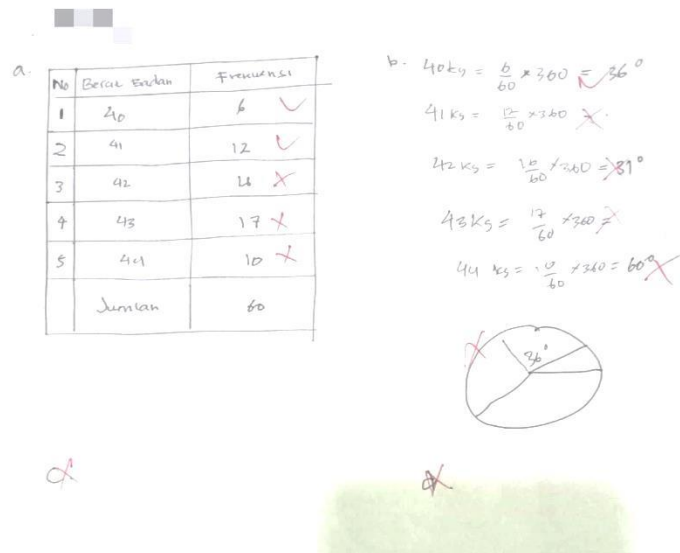 a.
No Berat Badan Frekuensi
1 40 6
2 41 12
3 42
4 43 17
5 44 10
Jumlah 60
b. 40kg = 6/60 × 360 = 36°
41kg = 12/60 × 360 =
42kg = 16/60 × 360 = 31°
43kg = 17/60 × 360 =
44 kg = 10/60 × 360 = 60°
36°